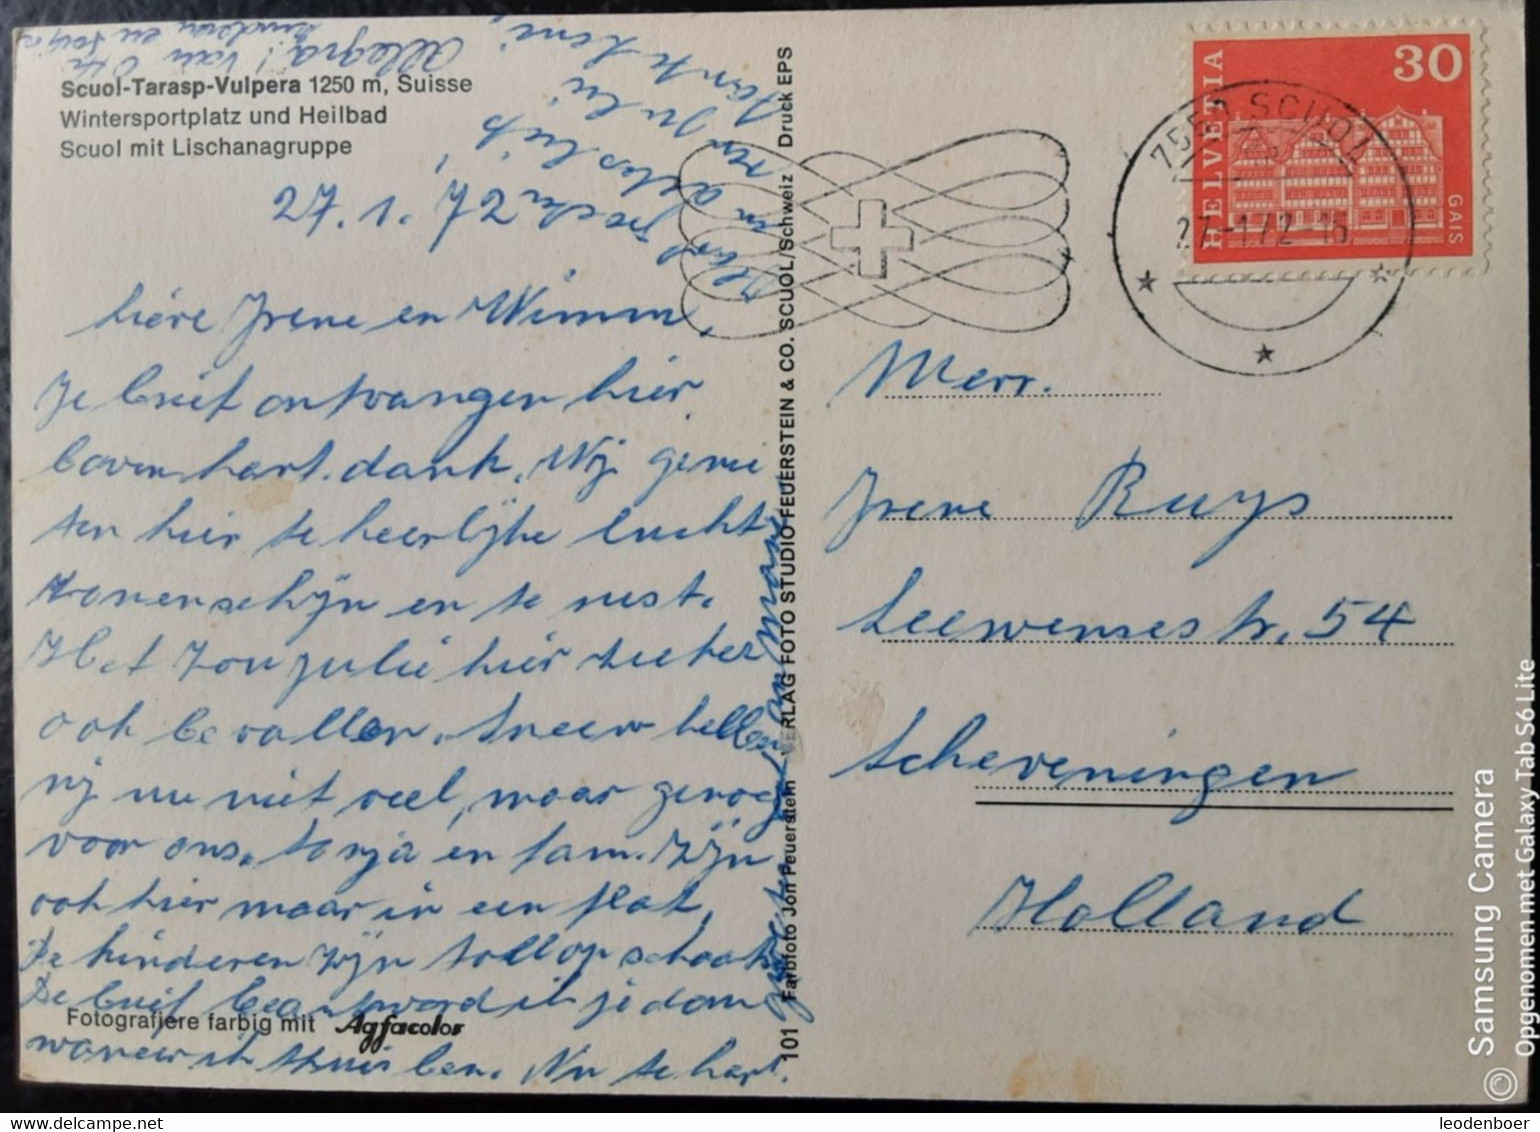 Scuol-Tarasp-Vulpera 1250 m, Suisse
Wintersportplatz und Heilbad
Scuol mit Lischanagruppe
Allegra! van
27.1.
Irene en Wimm,
Je brief ontvangen hier
boven hart. dank. Wij genie
ten hier te heerlijke lucht
zonenschijn en te rust.
Het zou Julie hier zeeker
ook bevallen. Sneew hebben
wij nu niet veel, maar genoeg
voor ons. Sonja en fam. zijn
ook hier maar in een flat.
De kinderen zijn doll op schaats
De brief beantword ik je dan
waneer ik thuis ben. Nu te hart.
Fotografiere farbig mit Agfacolor
101 Farbfoto Jon Feuerstein VERLAG FOTO STUDIO FEUERSTEIN & CO. SCUOL/Schweiz Druck EPS
HELVETIA
30
GAIS
7550 SCUOL
27.-1.72-16
Merr.
Irene Ruys
Leeuwensestr. 54
Scheveningen
Holland
© Samsung Camera
Opgenomen met Galaxy Tab S6 Lite
leodenboer